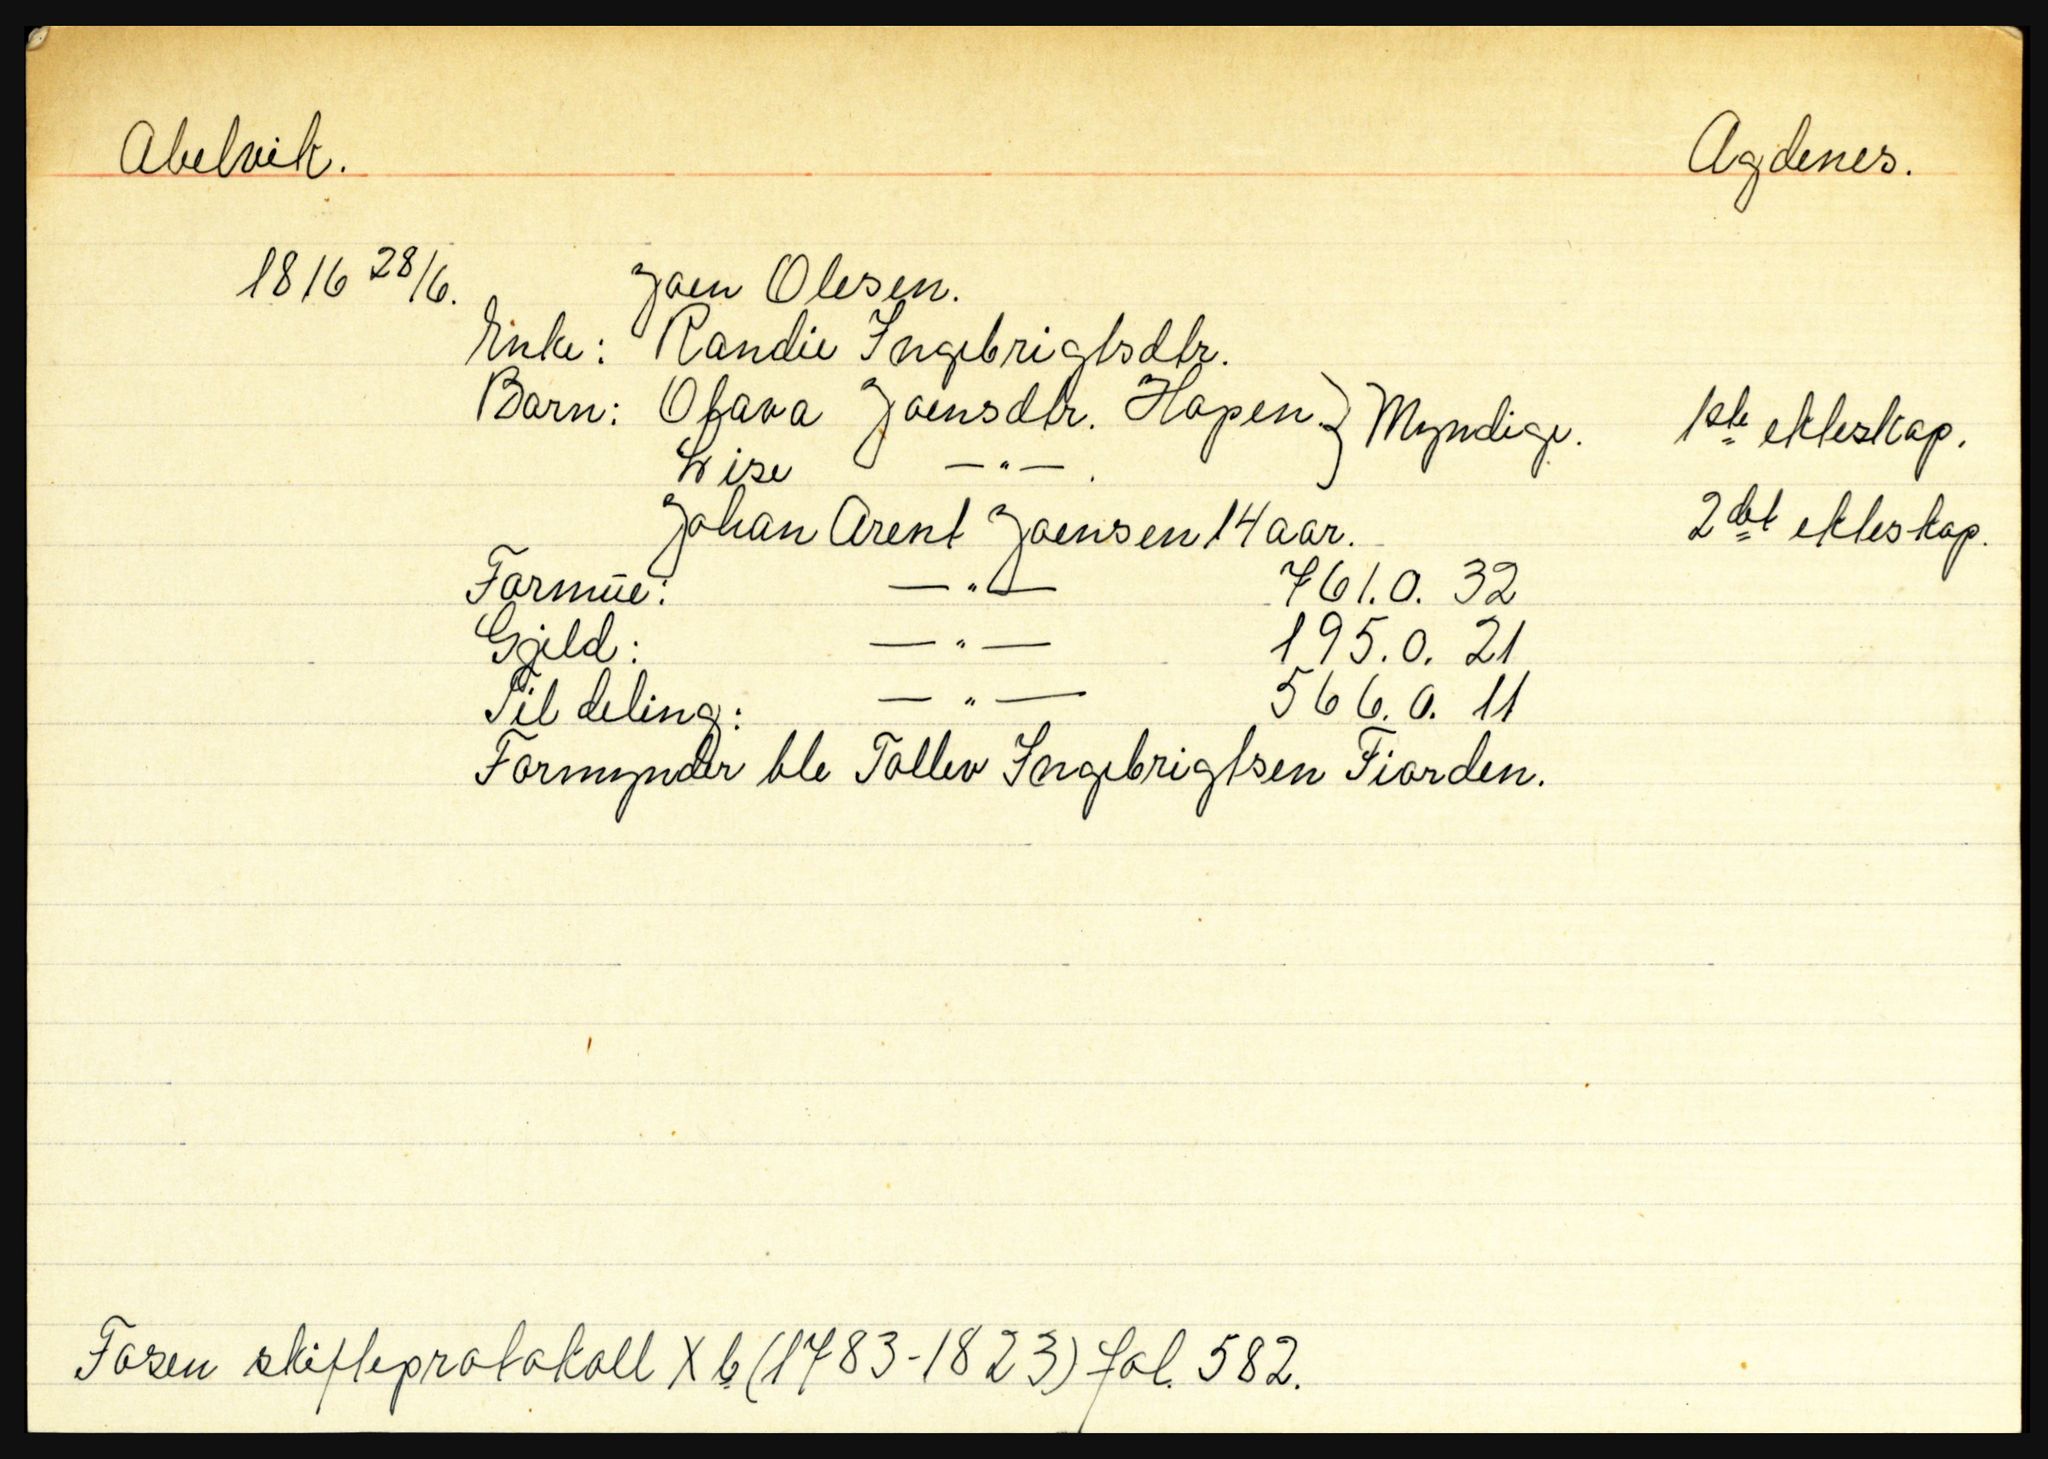 Abelvik. Agdenes.
1816 28/6. Joen Olesen.
Enke: Randie Ingebrigtsdtr.
Barn: Olava Joensdtr. Hopen. } Myndige. 1ste ekteskap.
Lise —"— .
Johan Arent Joensen 14 aar. 2det ekteskap.
Formue: —"— 761. 0. 32
Gjeld: —"— 195. 0. 21
Til deling: —"— 566. 0. 11
Formynder ble Tollev Ingebrigtsen Fiorden.
Fosen skifteprotokoll X b (1783-1823) fol. 582.